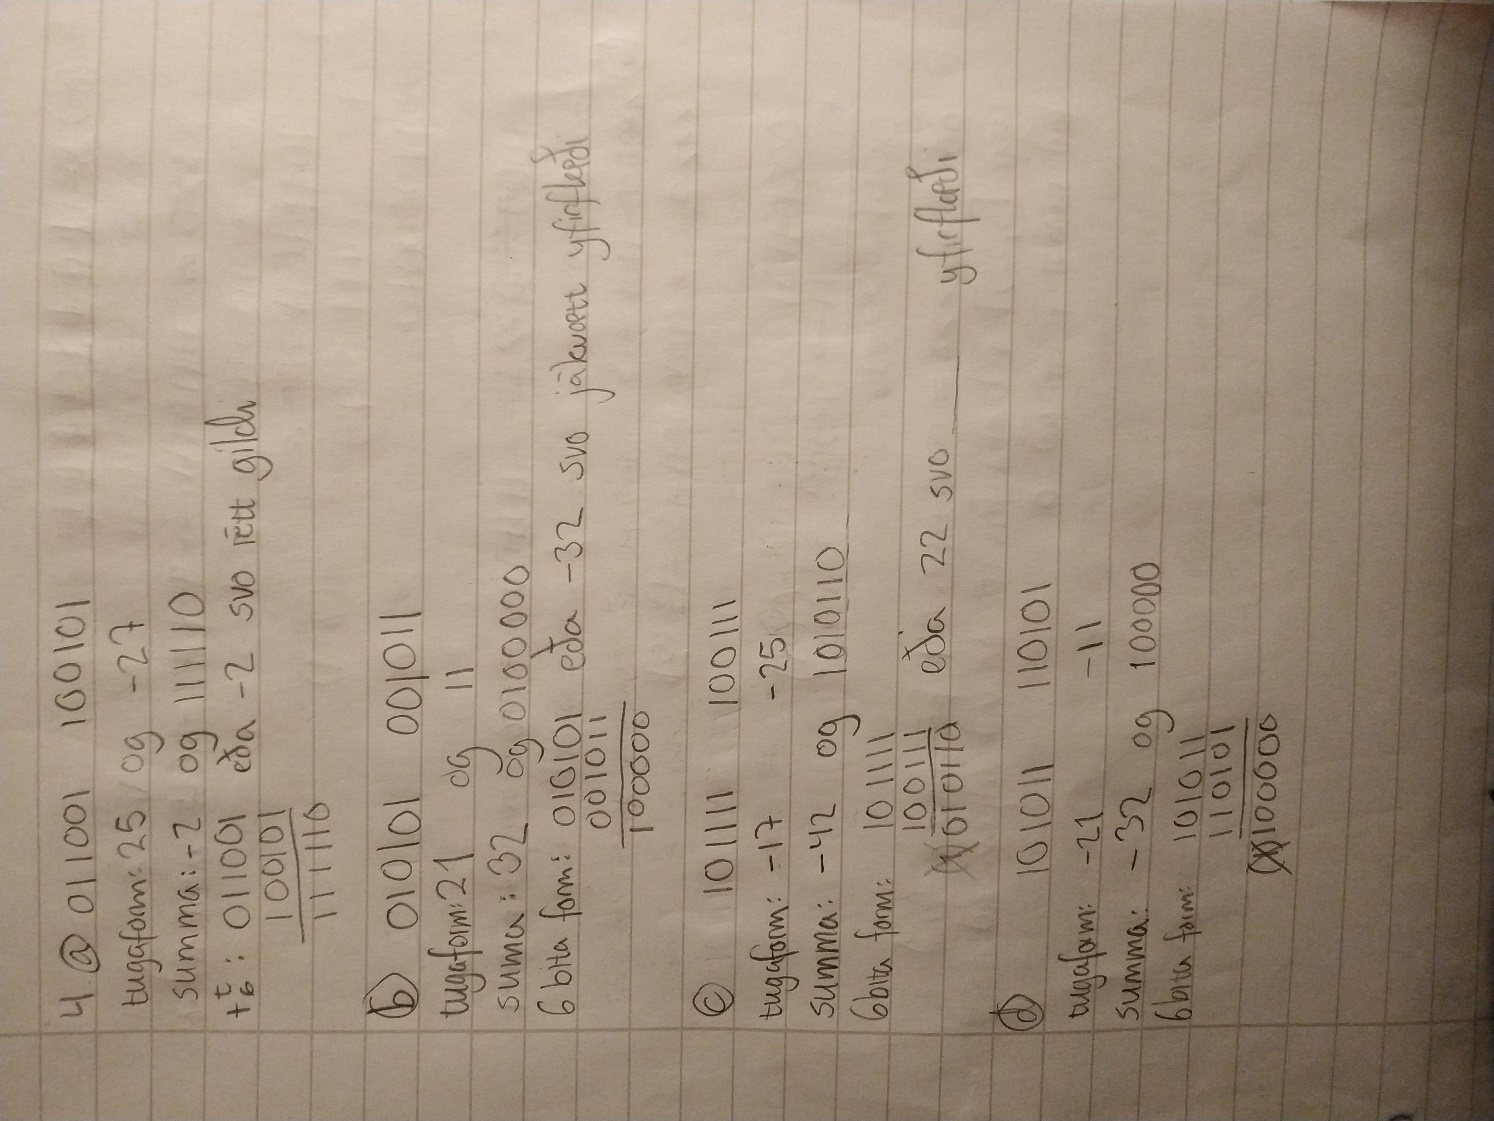 4 ⓐ 011001 100101
tugaform: 25 og -27
summa: -2 og 111110
+6t: 011001 eða -2 svo rétt gildi
100101
111110
ⓑ 010101 001011
tugaform: 21 og 11
suma: 32 og 0100000
6 bita form: 010101 eða -32 svo jákvætt yfirflæði
001011
100000
ⓒ 101111 100111
tugaform: -17 -25
summa: -42 og 1010110
6bita form: 101111
100111 eða 22 svo ____ yfirflæði
010110
ⓓ 101011 110101
tugaform: -21 -11
summa: -32 og 100000
6bita form: 101011
110101
100000